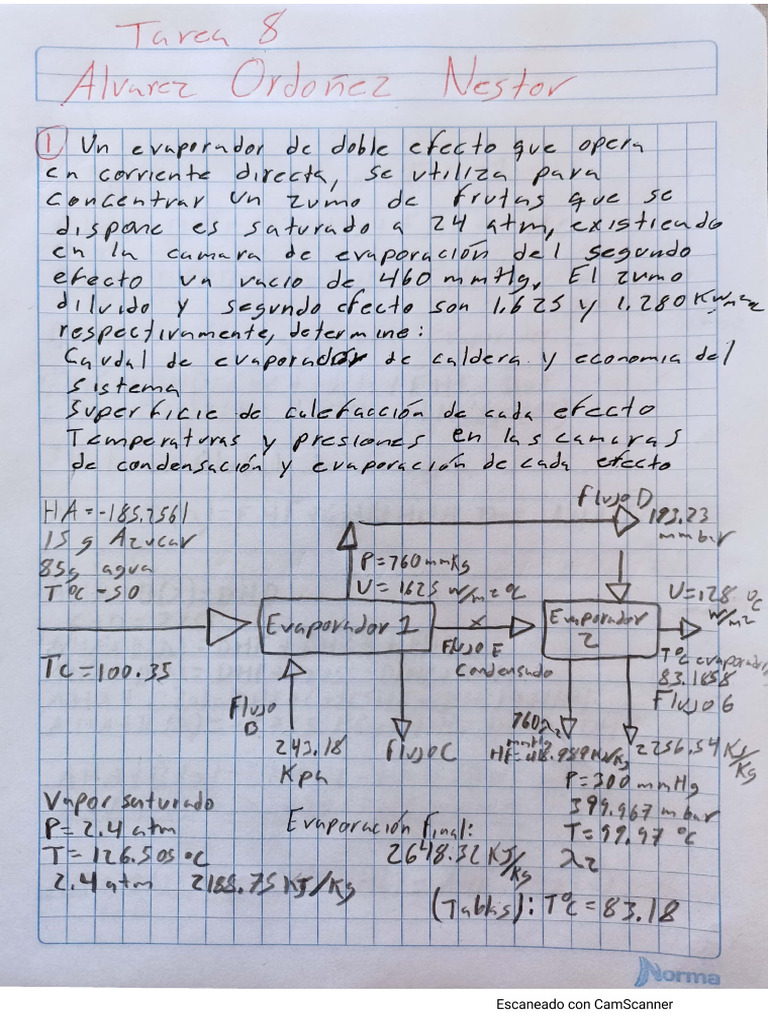 Tarea 8
Alvarez Ordoñez Nestor
1 Un evaporador de doble efecto que opera
en corriente directa, se utiliza para
concentrar un zumo de frutas que se
dispone es saturado a 24 atm, existiendo
en la camara de evaporación del segundo
efecto un vacio de 460 mmHg, El zumo
diluido y segundo efecto son 1,625 y 1,280
respectivamente, determine:
Caudal de evaporador de caldera y economia del
sistema
Superficie de calefacción de cada efecto
Temperaturas y presiones en las camaras
de condensación y evaporación de cada efecto
HA=-185.2561
15 g Azucar
85g agua
T°C -50
Flujo D
193.23
mmbar
P=760mmKg
U= 1625 w/m2 °C
U=128 °C
W/m2
Evaporador 1
Flujo E
Condensado
Evaporador
2
T°C
83.1858
Flujo G
Tc=100.35
Flujo
B
243.18
Kpa
Flujo C
760
mmHg
λ2
2256.54 KJ/Kg
P=300 mmHg
399.967 mbar
T=99.97 °C
λ2
Vapor saturado
P=2.4 atm
T=126.505°C
2.4atm 2188.75 KJ/Kg
Evaporación Final:
2648.32 KJ/Kg
(Tablas): T°C=83.18
Norma
Escaneado con CamScanner